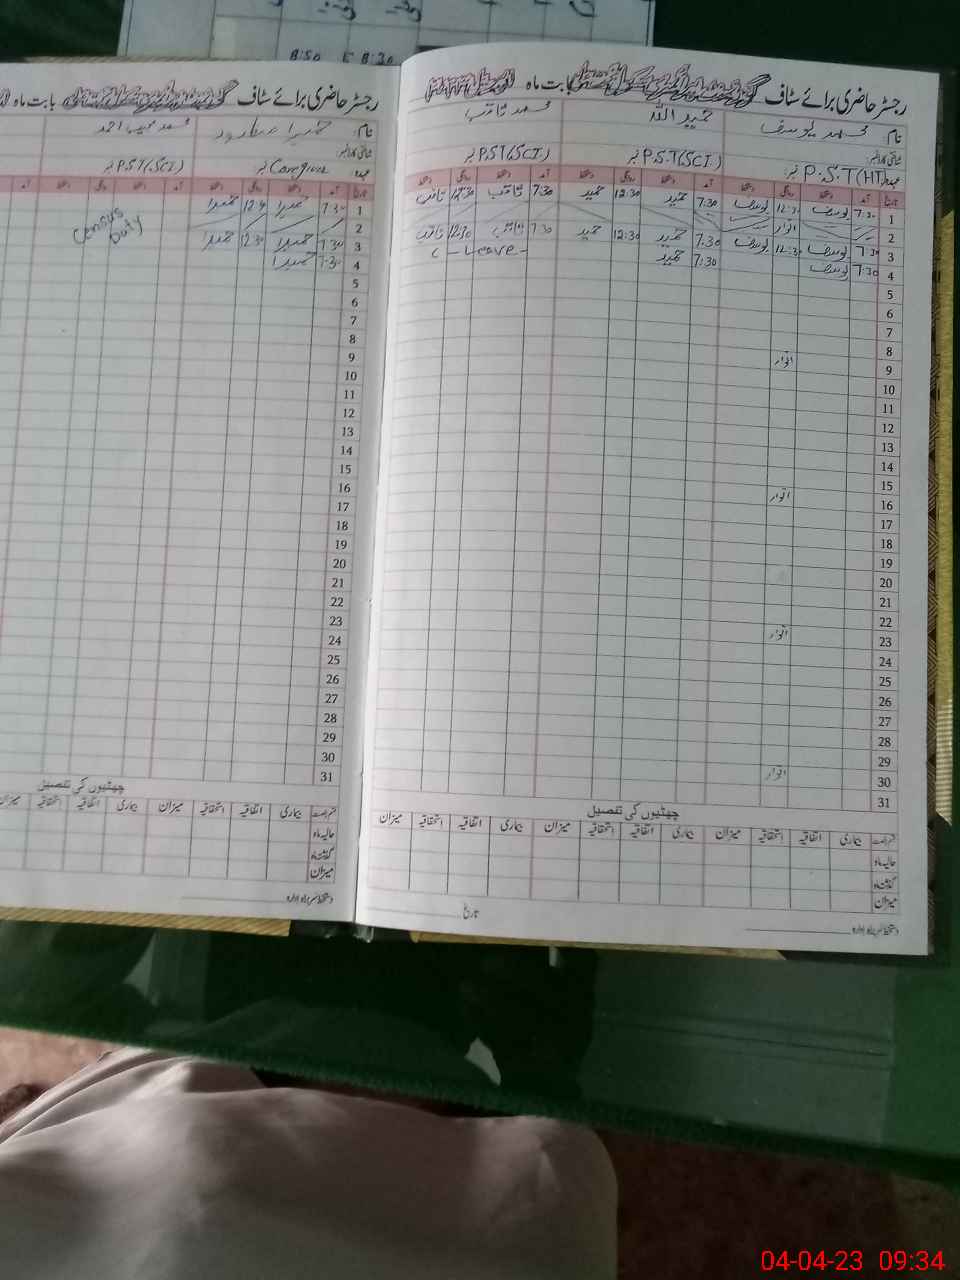 8:50 E 8:30
رجسٹر حاضری برائے سٹاف
بابت ماہ
نام: محمد یوسف
حمید اللہ
محمد ثاقب
شناختی کارڈ نمبر
عہدہ P.S.T(HT) نمبر
P.S.T(SCI.) نمبر
P.S.T(SCI.) نمبر
تاریخ آمد دستخط روانگی دستخط آمد دستخط روانگی دستخط آمد دستخط روانگی دستخط
1 7:30 یوسف 12:30 یوسف 7:30 حمید 12:30 حمید 7:30 ثاقب 12:30 ثاقب
2 اتوار
3 7:30 یوسف 12:30 یوسف 7:30 حمید 12:30 حمید 7:30 ثاقب 12:30 ثاقب
4 7:30 یوسف 7:30 حمید - Leave -
5
6
7
8
9 اتوار
10
11
12
13
14
15
16 اتوار
17
18
19
20
21
22
23 اتوار
24
25
26
27
28
29
30 اتوار
31
چھٹیوں کی تفصیل
قسم رخصت بیماری اتفاقیہ استحقاقیہ میزان بیماری اتفاقیہ استحقاقیہ میزان بیماری اتفاقیہ استحقاقیہ میزان
حالیہ ماہ
گذشتہ ماہ
میزان
دستخط سربراہ ادارہ
تاریخ
رجسٹر حاضری برائے سٹاف
بابت ماہ
نام:
شناختی کارڈ نمبر
عہدہ Caregiver نمبر
P.S.T(SCI) نمبر
تاریخ آمد دستخط روانگی دستخط آمد دستخط روانگی دستخط آمد
1 7:30 حمیرا حمیرا
2
3 7:30 حمیرا 12:30 حمیرا
4 7:30 حمیرا
Census
Duty
5
6
7
8
9
10
11
12
13
14
15
16
17
18
19
20
21
22
23
24
25
26
27
28
29
30
31
چھٹیوں کی تفصیل
قسم رخصت بیماری اتفاقیہ استحقاقیہ میزان بیماری اتفاقیہ استحقاقیہ میزان
حالیہ ماہ
گذشتہ ماہ
میزان
دستخط سربراہ ادارہ
04-04-23 09:34